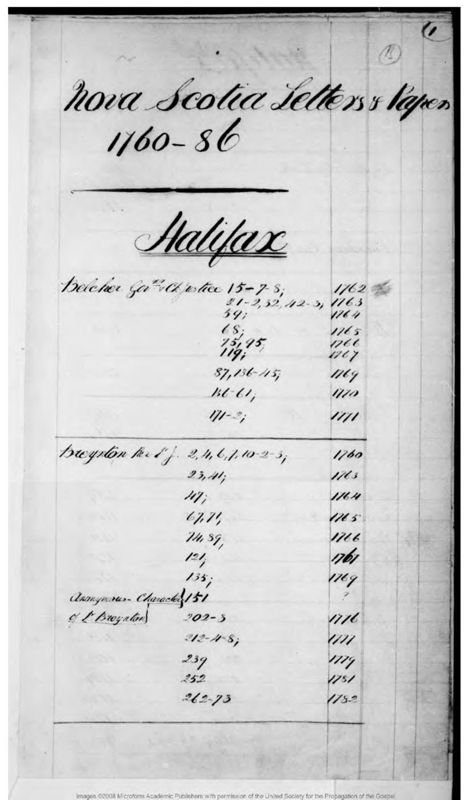 1
Nova Scotia Letters & Papers
1760-86
Halifax
Belcher Govr & Ch Justice 15-7-8; 1762
21-2, 32, 42-3; 1763
59; 1764
68; 1765
75, 95; 1766
119; 1767
87, 136-45; 1769
156-61; 1770
171-2; 1771
Breynton Rev Dr J. 2, 4, 6, 7, 10-2-3; 1760
23, 41; 1763
47; 1764
67, 71, 1765
74, 89, 1766
121, 1761
135; 1769
Anonymous Character 151 ?
of Dr Breynton 202-3 1776
212-4-8; 1777
239 1779
252 1781
262-73 1782
Images ©2008 Microform Academic Publishers with permission of the United Society for the Propagation of the Gospel